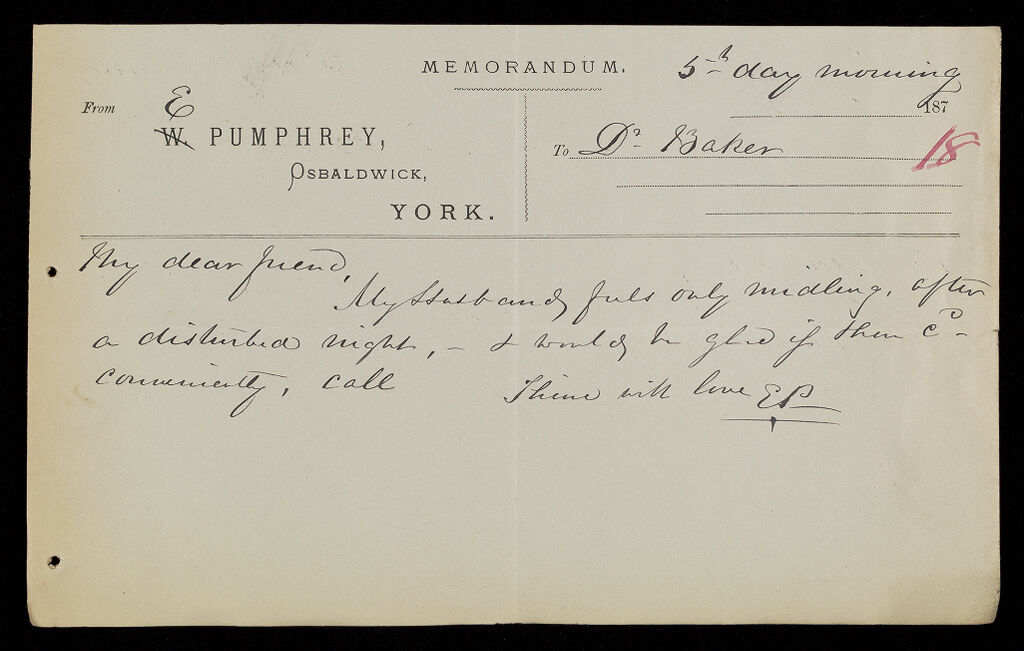 MEMORANDUM.
5th day morning
187
From
E
W. PUMPHREY,
OSBALDWICK,
YORK.
To Dr Baker
18
My dear friend,
My Husband feels only midling, after
a disturbed night, - & would be glad if thou cd
conveniently, call
Thine with love EP